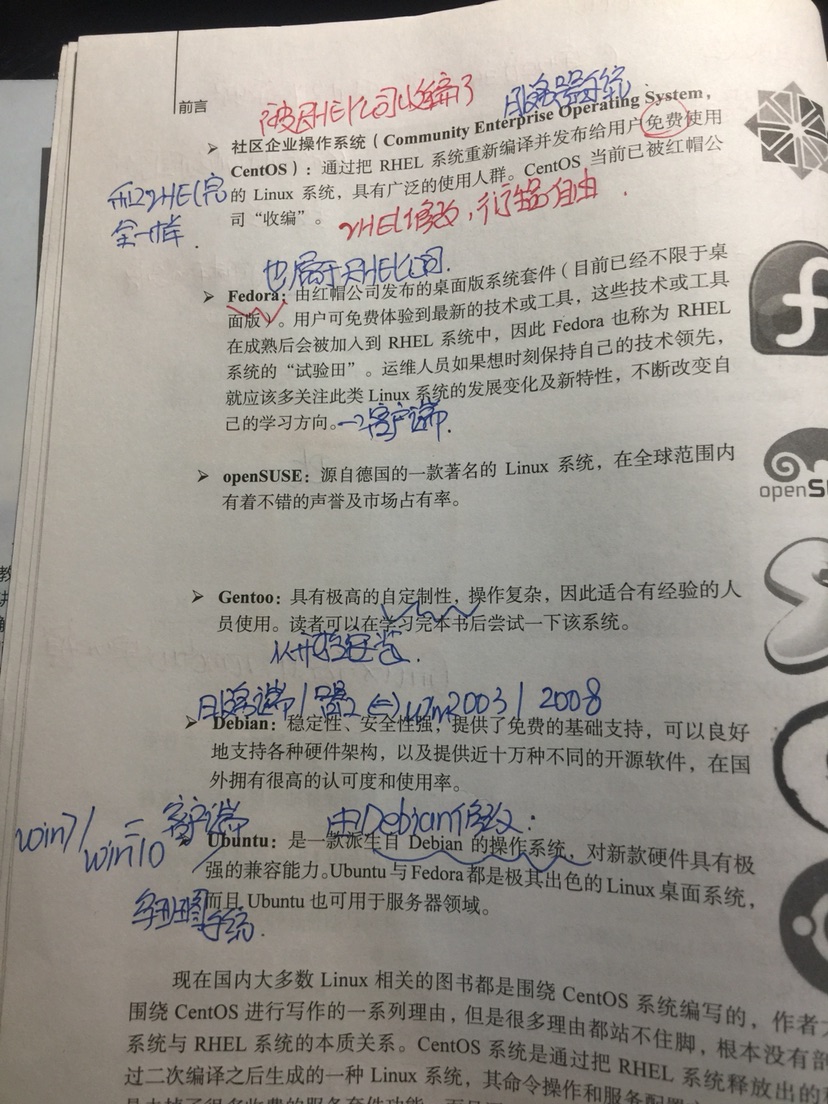 前言
被RHEL公司收编了
服务器系统.
社区企业操作系统（Community Enterprise Operating System，
CentOS）：通过把 RHEL 系统重新编译并发布给用户免费使用
的 Linux 系统，具有广泛的使用人群。CentOS 当前已被红帽公
司“收编”。
和RHEL完
全一样.
RHEL修改，衍生品自由.
也属于RHEL公司.
Fedora：由红帽公司发布的桌面版系统套件（目前已经不限于桌
面版）。用户可免费体验到最新的技术或工具，这些技术或工具
在成熟后会被加入到 RHEL 系统中，因此 Fedora 也称为 RHEL
系统的“试验田”。运维人员如果想时刻保持自己的技术领先，
就应该多关注此类 Linux 系统的发展变化及新特性，不断改变自
己的学习方向。
→客户端.
openSUSE：源自德国的一款著名的 Linux 系统，在全球范围内
有着不错的声誉及市场占有率。
openSU
Gentoo：具有极高的自定制性，操作复杂，因此适合有经验的人
员使用。读者可以在学习完本书后尝试一下该系统。
服务端/器 win2003/2008
Debian：稳定性、安全性强，提供了免费的基础支持，可以良好
地支持各种硬件架构，以及提供近十万种不同的开源软件，在国
外拥有很高的认可度和使用率。
win7/win10
客户端
由Debian修改.
Ubuntu：是一款派生自 Debian 的操作系统，对新款硬件具有极
强的兼容能力。Ubuntu 与 Fedora 都是极其出色的 Linux 桌面系统，
而且 Ubuntu 也可用于服务器领域。
现在国内大多数 Linux 相关的图书都是围绕 CentOS 系统编写的，作者
围绕 CentOS 进行写作的一系列理由，但是很多理由都站不住脚，根本没有剖
系统与 RHEL 系统的本质关系。CentOS 系统是通过把 RHEL 系统释放出的
过二次编译之后生成的一种 Linux 系统，其命令操作和服务配置